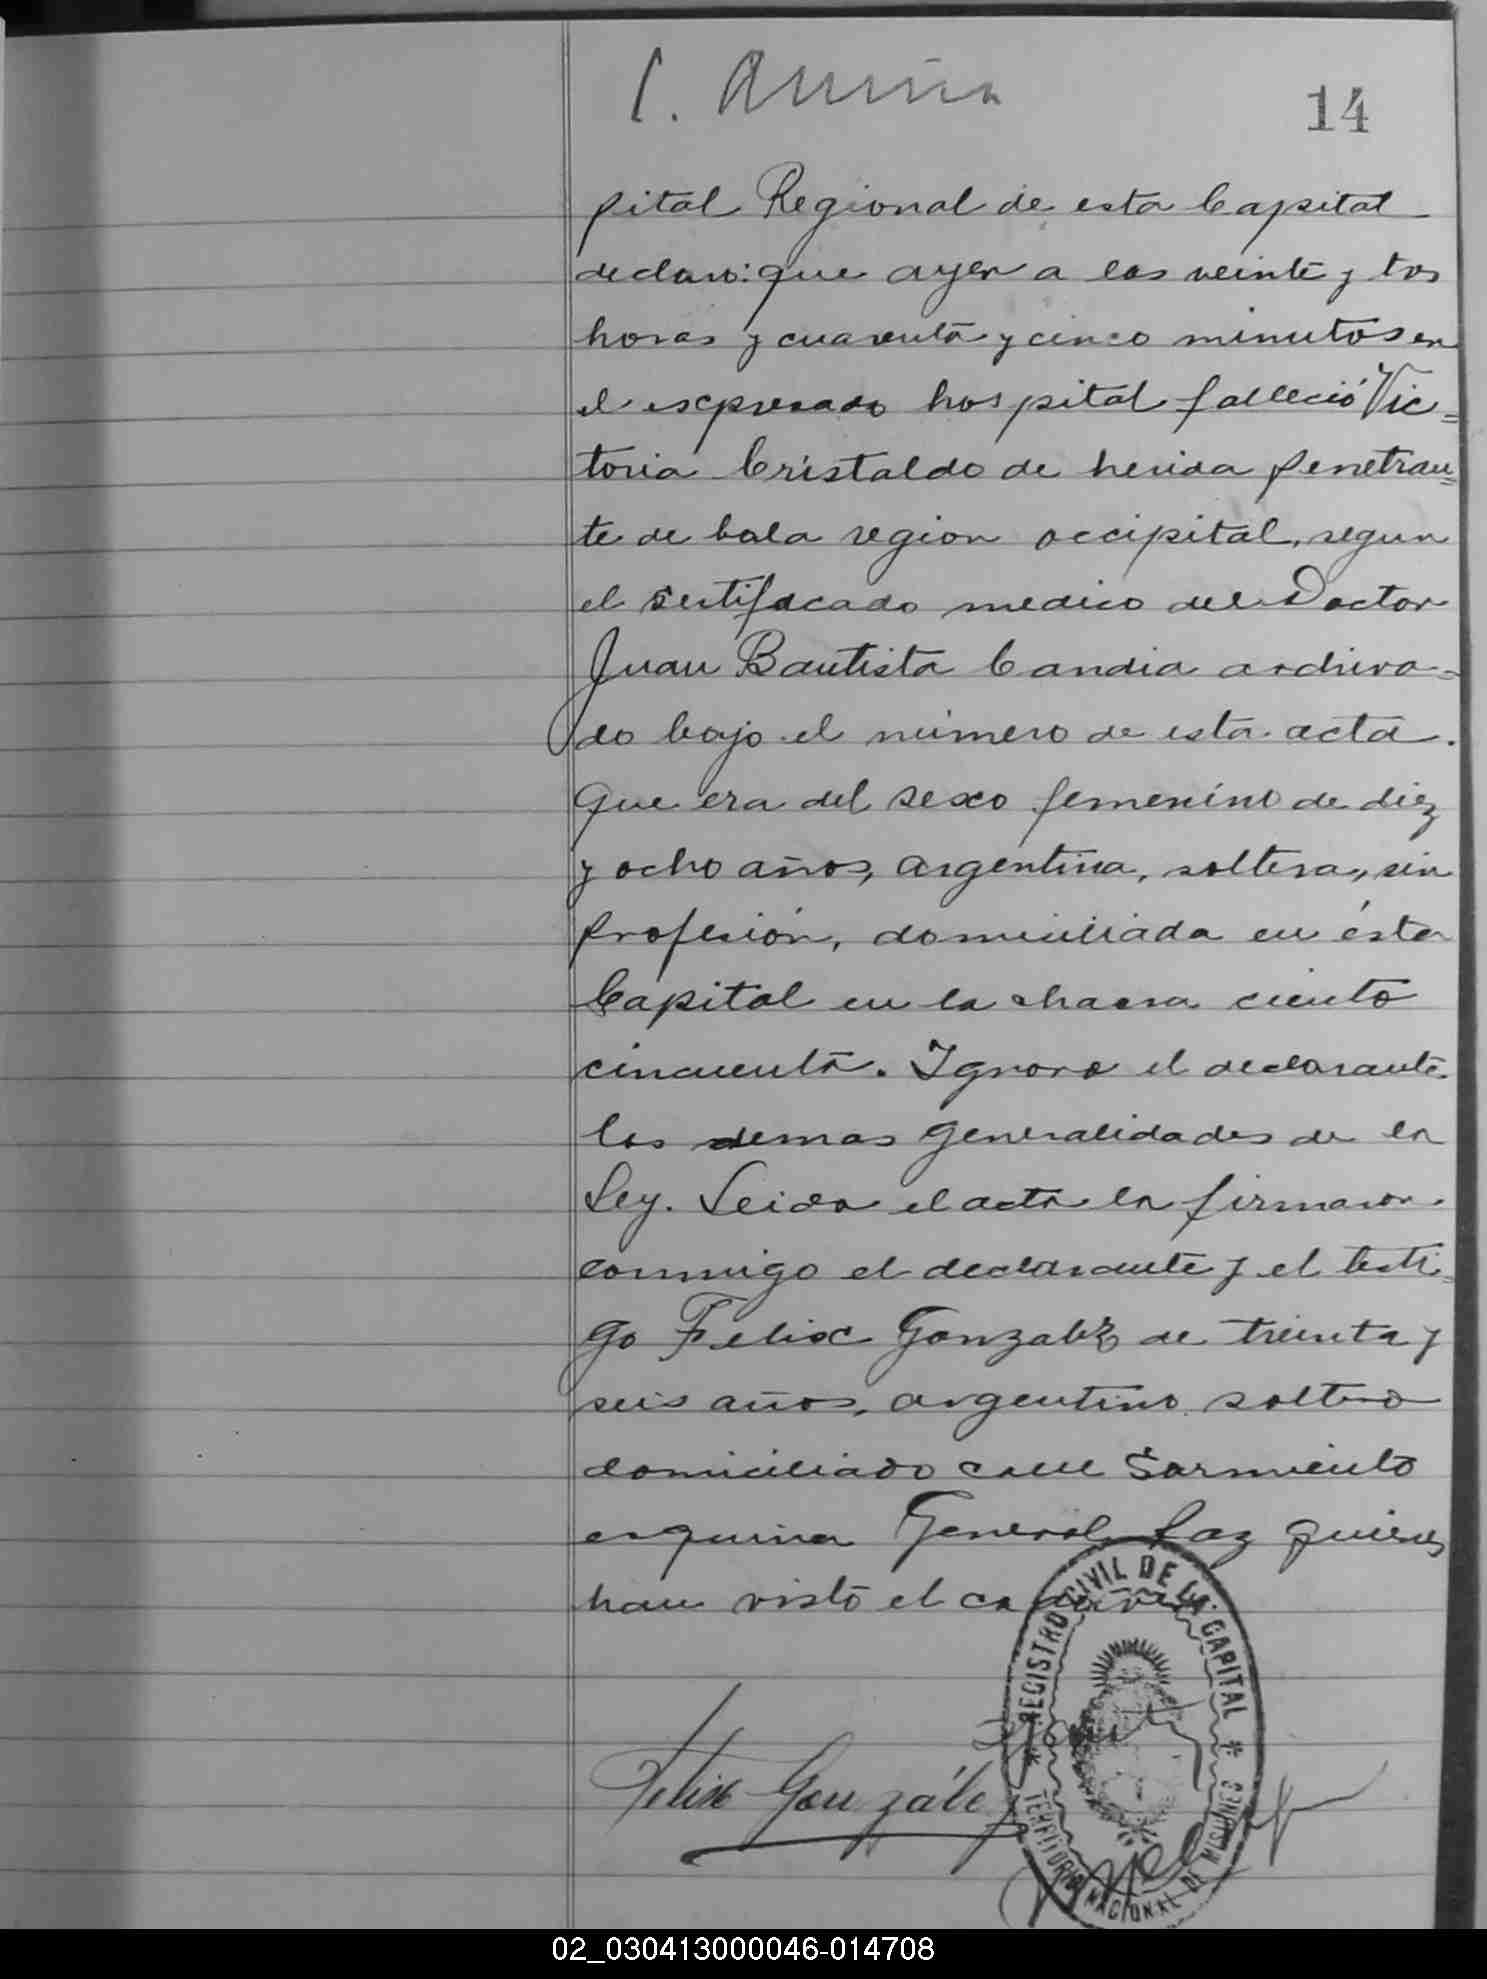 14
pital Regional de esta Capital
declaro: que ayer a las veinte y tos
horas y cuarenta y cinco minutos en
el expresado hospital falleció Vic=
toria Cristaldo de herida penetran=
te de bala region occipital, segun
el sertificado medico del Doctor
Juan Bautista Candia archiva=
do bajo el número de esta acta.
Que era del sexo femenino de diez
y ocho años, argentina, soltera, sin
profesión, domiciliada en ésta
Capital en la chacra ciento
cincuenta. Ignora el declarante
las demas generalidades de la
Ley. Leida el acta la firmaron
conmigo el declarante y el testi=
go Felix González de treinta y
seis años, argentino soltero
domiciliado calle Sarmiento
esquina General Paz quienes
han visto el cadáver
REGISTRO CIVIL DE LA CAPITAL * TERRITORIO NACIONAL DE MISIONES *
Felix González
02_030413000046-014708